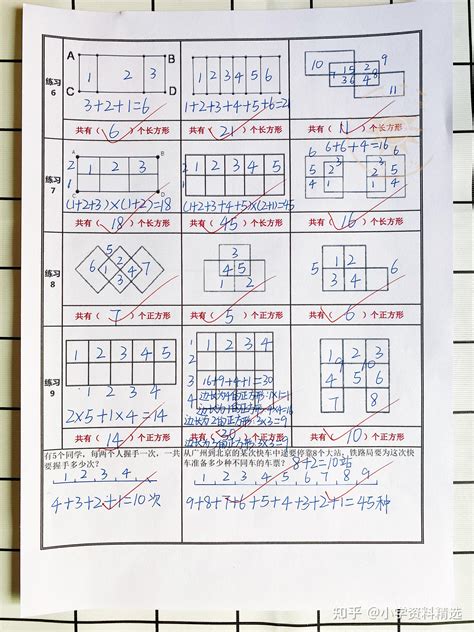 练习6
A B
1 2 3
C D
3+2+1=6
共有（ 6 ）个长方形
1 2 3 4 5 6
1+2+3+4+5+6=21
共有（ 21 ）个长方形
10 9
11
共有（ 11 ）个长方形
练习7
1 2 3
(1+2+3)×(1+2)=18
共有（ 18 ）个长方形
1 2 3 4 5
(1+2+3+4+5)×(2+1)=45
共有（ 45 ）个长方形
6+6+4=16
共有（ 16 ）个长方形
练习8
6 1 2 3 4 7
5
共有（ 7 ）个正方形
3
4 5
1 2
共有（ 5 ）个正方形
5 1 2 6
3 4
共有（ 6 ）个正方形
练习9
1 2 3 4 5
1 2 3 4
2×5+1×4=14
共有（ 14 ）个正方形
1 2 3 4
16+9+4+1=30
共有（ 30 ）个正方形
1 2 3
9 10
4 5 6
7 8
共有（ 10 ）个正方形
有5个同学，每两个人握手一次，一共要握手多少次？
1 2 3 4
4+3+2+1=10次
从广州到北京的某次快车中途要停靠8个大站，铁路局要为这次快车准备多少种不同车的车票？
8+2=10站
1 2 3 4 5 6 7 8 9
9+8+7+6+5+4+3+2+1=45种
知乎 @小学资料精选